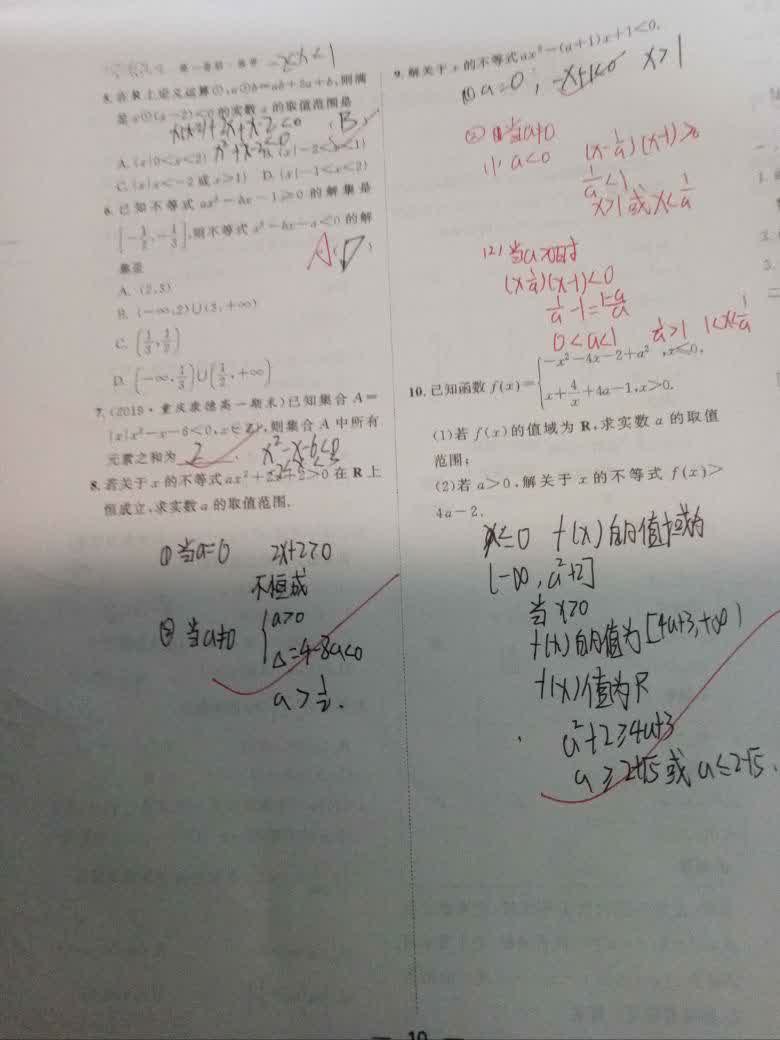 -2<x<1
5.在R上定义运算⊙:a⊙b=ab+2a+b,则满
足x⊙(x-2)<0的实数x的取值范围是
x(x-2)+2x+x-2<0
(B)
x²+x-2<0
A.{x|0<x<2} B.{x|-2<x<1}
C.{x|x<-2或x>1} D.{x|-1<x<2}
6.已知不等式ax²-bx-1≥0的解集是
[-1/2,-1/3],则不等式x²-bx-a<0的解
集是
A(D)
A.(2,3)
B.(-∞,2)∪(3,+∞)
C.(1/3,1/2)
D.(-∞,1/3)∪(1/2,+∞)
7.(2019·重庆康德高一期末)已知集合A=
{x|x²-x-6<0,x∈Z},则集合A中所有
元素之和为 2 .
x²-x-6<0
-2<x<3
8.若关于x的不等式ax²+2x+2>0在R上
恒成立,求实数a的取值范围.
①当a=0 2x+2>0
不恒成
②当a≠0 {a>0
Δ=4-8a<0
a>1/2.
9.解关于x的不等式ax²-(a+1)x+1<0.
(1)a=0, -x+1<0 x>1
②当a≠0
(1)a<0 (x-1/a)(x-1)>0
1/a<1
x>1或x<1/a
(2)当a>0时
(x-1/a)(x-1)<0
1/a-1=1-a/a
0<a<1 1/a>1 1<x<1/a
10.已知函数f(x)={-x²-4x-2+a²,x≤0,
x+4/x+4a-1,x>0.
(1)若f(x)的值域为R,求实数a的取值
范围;
(2)若a>0,解关于x的不等式f(x)>
4a-2.
x≤0 f(x)的值域为
[-∞,a²+2]
当x>0
f(x)的值为[4a+3,+∞)
f(x)值为R
a²+2≥4a+3
a≥2+√5或a≤2-√5.
10